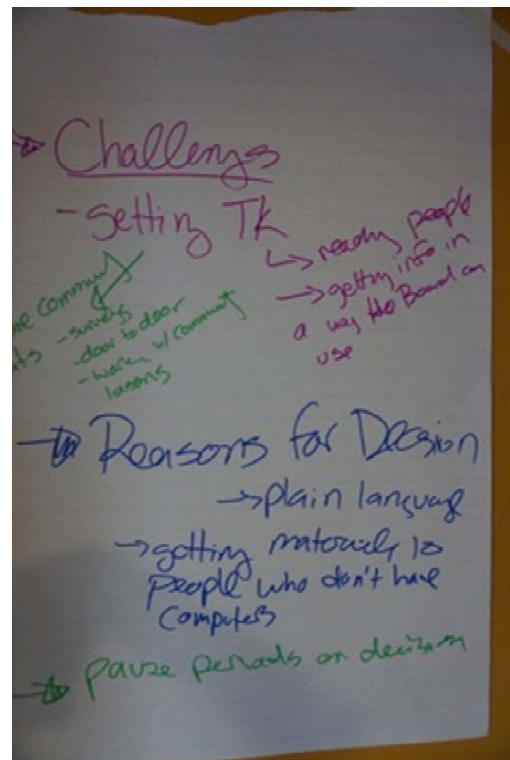 Challengs
- Getting TK
↳ reaching people
→ getting info in
a way the Board can
use
communit
- surveys
- door to door
- work w/ communit
liasons
→ Reasons for Decision
→ plain language
→ getting materials to
people who don't have
computers
→ pause periods on decision